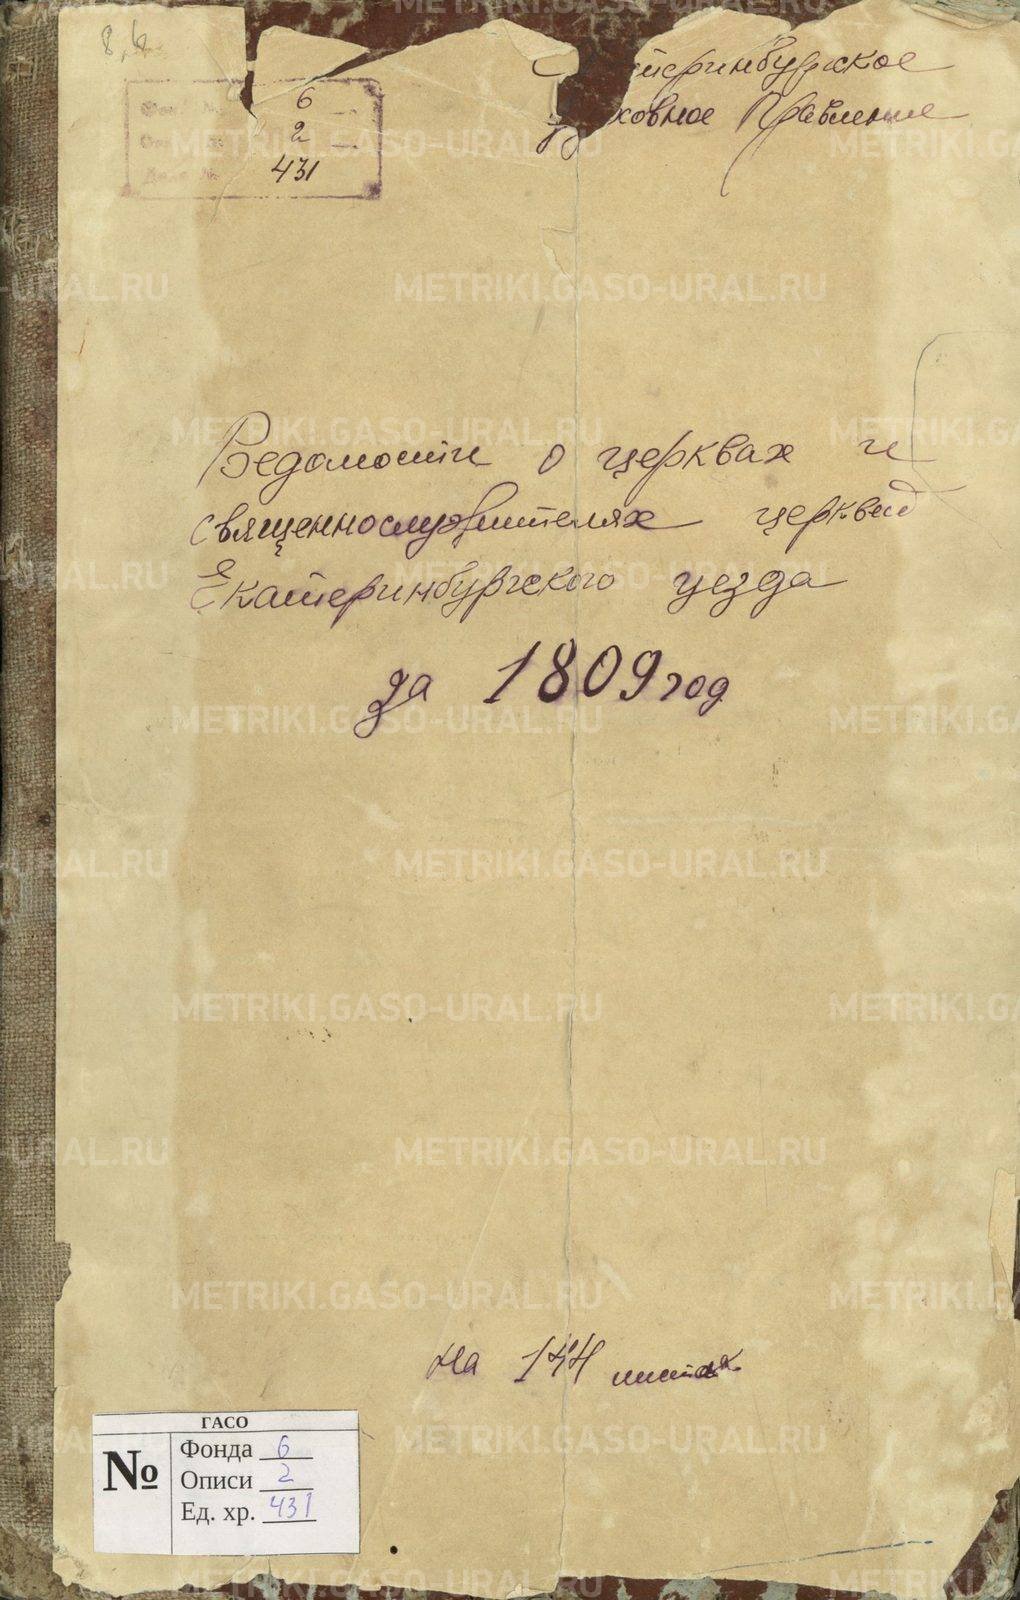 8,6
Фонд № 6
2
431
Екатеринбургское
Духовное Правление
Ведомости о церквах и
священнослужителях церквей
Екатеринбургского уезда
за 1809 год
на 144 листах
ГАСО
№
Фонда 6
Описи 2
Ед. хр. 431
METRIKI.GASO-URAL.RU